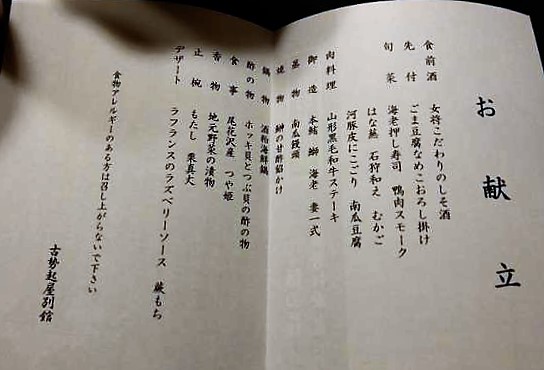 お献立
食前酒 女将こだわりのしそ酒
先付 ごま豆腐なめこおろし掛け
旬菜 海老押し寿司 鴨肉スモーク
はな蕪 石狩和え むかご
河豚皮にこごり 南瓜豆腐
肉料理 山形黒毛和牛ステーキ
御造 本鮪 鰤 海老 妻一式
蒸物 南瓜饅頭
焼物 鰤の甘酢餡かけ
鍋物 酒粕海鮮鍋
酢の物 ホッキ貝とつぶ貝の酢の物
食事 尾花沢産 つや姫
香物 地元野菜の漬物
止椀 もだし 栗真丈
デザート ラフランスのラズベリーソース 蕨もち
食物アレルギーのある方は召し上がらないで下さい
古勢起屋別館